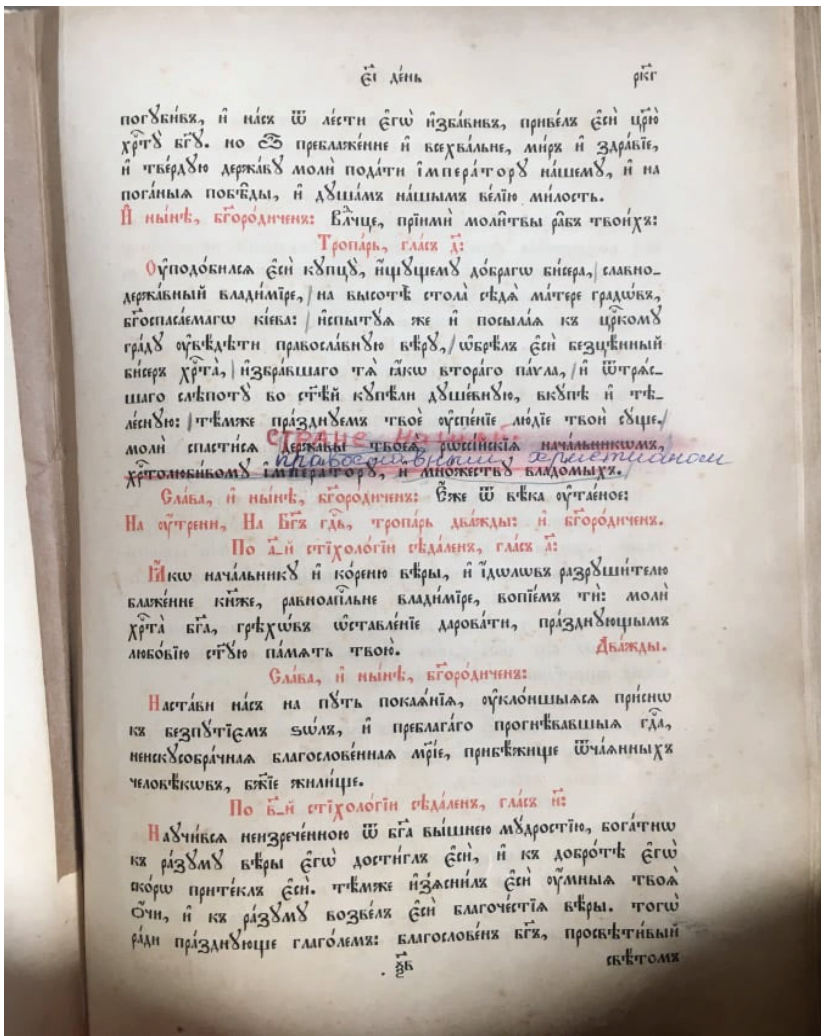 є҃і де́нь рк҃г
погꙋби́въ, и҆ на́съ ѿ ле́сти є҆гѡ̀ и҆зба́вивъ, приве́лъ є҆сѝ цр҃ю̀
хр҇тꙋ̀ бг҃ꙋ. но ѽ преблаже́нне и҆ всехва́льне, ми́ръ и҆ здра́вїе,
и҆ тве́рдꙋю держа́вꙋ молѝ пода́ти і҆мпера́торꙋ на́шемꙋ, и҆ на
пога́ныѧ побѣ̑ды, и҆ дꙋша́мъ на́шымъ ве́лїю ми́лость.
И҆ ны́нѣ, бг҃оро́диченъ: Влⷣчце, прїимѝ моли̑твы ра̑бъ твои́хъ:
Тропа́рь, гла́съ д҃:
Оу҆подо́билсѧ є҆сѝ кꙋпцꙋ̀, и҆́щꙋщемꙋ до́брагѡ би́сера, | славно_
держа́вный влади́мїре, / на высотѣ̀ стола̀ сѣдѧ̀ ма́тере градѡ́въ,
бг҃оспаса́емагѡ кі́ева: | и҆спытꙋ́ѧ же и҆ посыла́ѧ къ ца́рскомꙋ
гра́дꙋ оу҆вѣ́дѣти правосла́внꙋю вѣ́рꙋ, / ѡ҆брѣ́лъ є҆сѝ безцѣ́нный
би́серъ хр҇та̀, | и҆збра́вшаго тѧ̀ ꙗ҆́кѡ втора́го па́ѵла, / и҆ ѿтрѧ́с_
шаго слѣпотꙋ̀ во ст҃ѣ́й кꙋпе́ли дꙋше́внꙋю, вкꙋ́пѣ и҆ тѣ_
ле́снꙋю: | тѣ́мже пра́зднꙋемъ твоѐ оу҆спе́нїе лю́дїе твоѝ сꙋ́ще, /
СТРАНе нашей:
молѝ спасти́сѧ держа́вы твоеѧ̀ рѡссі́йскїѧ нача́льникѡмъ,
православным христианом
хр҇толюби́вомꙋ і҆мпера́торꙋ, и҆ мно́жествꙋ владо́мыхъ.
Сла́ва, и҆ ны́нѣ, бг҃оро́диченъ: Є҆́же ѿ вѣ́ка оу҆тае́ное:
На оу҆́трени, На Бг҃ъ гдⷭ҇ь, тропа́рь два́жды: и҆ бг҃оро́диченъ.
По а҃_й стїхоло́гїи сѣда́ленъ, гла́съ а҃:
Ꙗ҆́кѡ нача́льникꙋ и҆ ко́реню вѣ́ры, и҆ і҆́дѡлѡвъ разрꙋши́телю
блаже́нне кнѧ́же, равноапⷭ҇льне влади́мїре, вопїе́мъ тѝ: молѝ
хр҇та̀ бг҃а, грѣхѡ́въ ѡ҆ставле́нїе дарова́ти, пра́зднꙋющымъ
любо́вїю ст҃ꙋ́ю па́мѧть твою̀. Два́жды.
Сла́ва, и҆ ны́нѣ, бг҃оро́диченъ:
Наста́ви на́съ на пꙋ́ть покаѧ́нїѧ, оу҆кло́ншыѧсѧ при́снѡ
къ безпꙋ́тїємъ ѕѡ́лъ, и҆ преблага́го прогнѣ́вавшыѧ гдⷭ҇а,
неискꙋсобра́чнаѧ благослове́ннаѧ мр҃і́е, прибѣ́жище ѿча́ѧнныхъ
человѣ́кѡвъ, бж҃їе жили́ще.
По в҃_й стїхоло́гїи сѣда́ленъ, гла́съ и҃:
Наꙋчи́всѧ неизрече́нною ѿ бг҃а вы́шнею мꙋ́дростїю, бога́тнѡ
къ ра́зꙋмꙋ вѣ́ры є҆гѡ̀ дости́глъ є҆сѝ, и҆ къ добро́тѣ є҆гѡ̀
ско́рѡ прите́клъ є҆сѝ. тѣ́мже и҆з̾ѧсни́лъ є҆сѝ оу҆́мныѧ твоѧ̑
ѻ҆́чи, и҆ къ ра́зꙋмꙋ возве́лъ є҆сѝ благоче́стїѧ вѣ́ры. тогѡ̀
ра́ди пра́зднꙋюще глаго́лемъ: благослове́нъ бг҃ъ, просвѣти́вый
свѣ́томъ